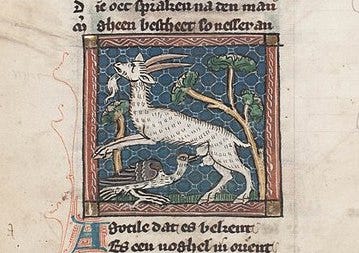 ie oec spraken na den man
gheen bescheet so nesser an
Agotile dat es belrent
Es een voghel in orient